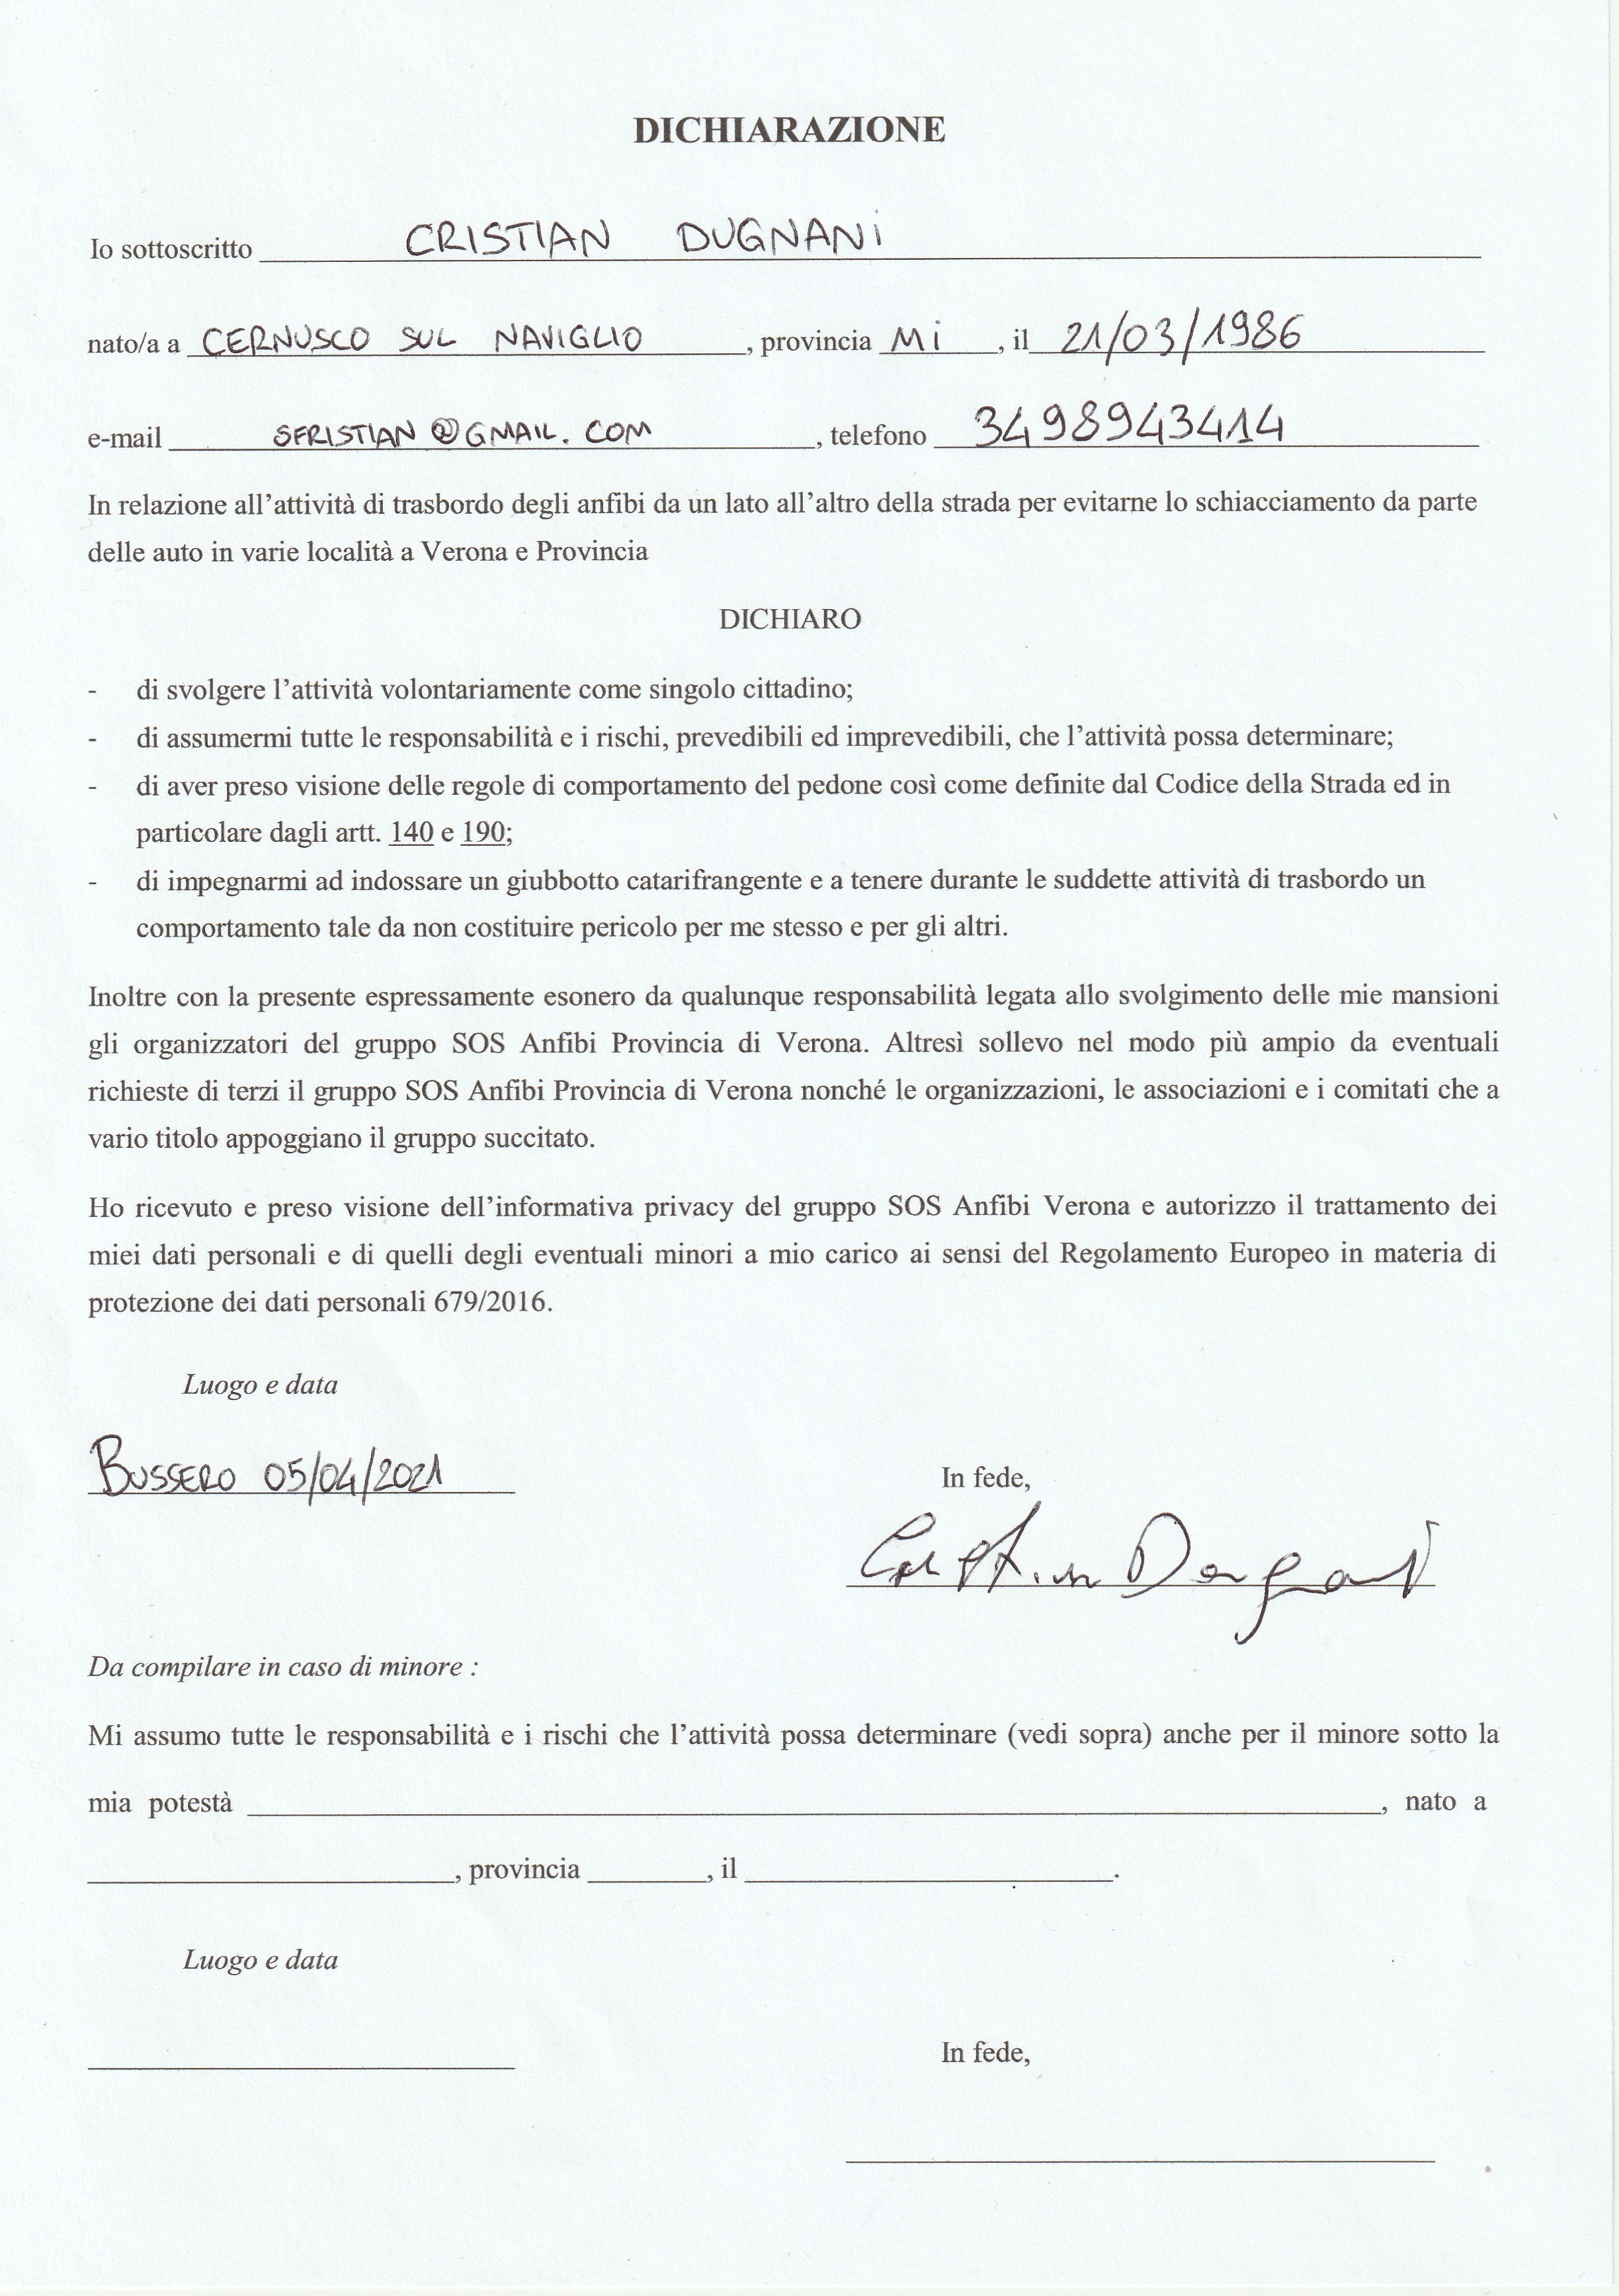 DICHIARAZIONE
Io sottoscritto CRISTIAN DUGNANI
nato/a a CERNUSCO SUL NAVIGLIO, provincia Mi, il 21/03/1986
e-mail SFRISTIAN@GMAIL.COM, telefono 3498943414
In relazione all'attività di trasbordo degli anfibi da un lato all'altro della strada per evitarne lo schiacciamento da parte
delle auto in varie località a Verona e Provincia
DICHIARO
- di svolgere l'attività volontariamente come singolo cittadino;
- di assumermi tutte le responsabilità e i rischi, prevedibili ed imprevedibili, che l'attività possa determinare;
- di aver preso visione delle regole di comportamento del pedone così come definite dal Codice della Strada ed in
particolare dagli artt. 140 e 190;
- di impegnarmi ad indossare un giubbotto catarifrangente e a tenere durante le suddette attività di trasbordo un
comportamento tale da non costituire pericolo per me stesso e per gli altri.
Inoltre con la presente espressamente esonero da qualunque responsabilità legata allo svolgimento delle mie mansioni
gli organizzatori del gruppo SOS Anfibi Provincia di Verona. Altresì sollevo nel modo più ampio da eventuali
richieste di terzi il gruppo SOS Anfibi Provincia di Verona nonché le organizzazioni, le associazioni e i comitati che a
vario titolo appoggiano il gruppo succitato.
Ho ricevuto e preso visione dell'informativa privacy del gruppo SOS Anfibi Verona e autorizzo il trattamento dei
miei dati personali e di quelli degli eventuali minori a mio carico ai sensi del Regolamento Europeo in materia di
protezione dei dati personali 679/2016.
Luogo e data
BUSSERO 05/04/2021
In fede,
Cristian Dugnani
Da compilare in caso di minore :
Mi assumo tutte le responsabilità e i rischi che l'attività possa determinare (vedi sopra) anche per il minore sotto la
mia potestà , nato a
, provincia , il .
Luogo e data
In fede,